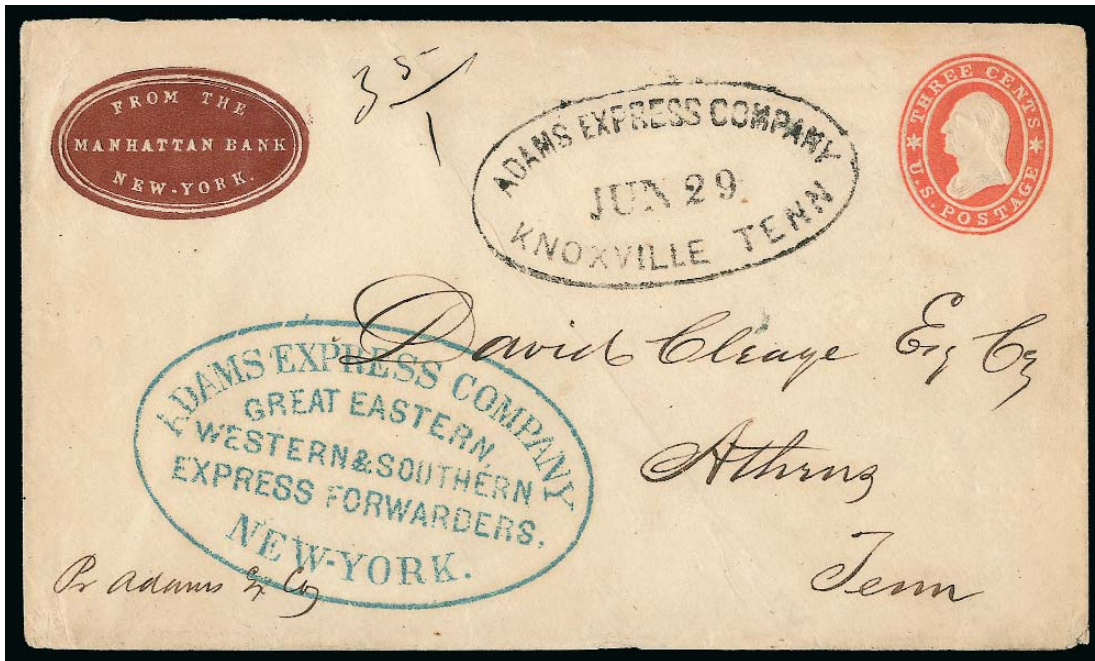 FROM THE
MANHATTAN BANK
NEW-YORK.
35
1
ADAMS EXPRESS COMPANY
JUN 29
KNOXVILLE TENN
THREE CENTS
U.S. POSTAGE
David Cleage Esq Cz
Athens
Tenn
ADAMS EXPRESS COMPANY
GREAT EASTERN,
WESTERN & SOUTHERN
EXPRESS FORWARDERS,
NEW-YORK.
Pr Adams Ex Co